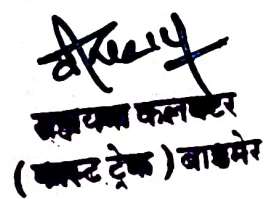 सहायक कलक्टर
(फास्ट ट्रेक) बाडमेर